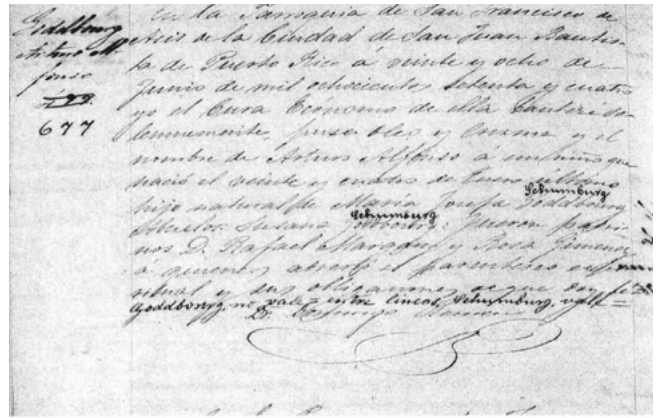 Goddbourg
Arturo Al
fonso
677
En la Parroquia de San Francisco de
Asis de la Ciudad de San Juan Bautis-
ta de Puerto Rico á veinte y ocho de
Junio de mil ochocientos setenta y cuatro
yo el Cura Ecónomo de ella bauticé so-
lemnemente, puse oleo y crisma y el
nombre de Arturo Alfonso á un niño que
nació el veinte y cuatro de Enero último
Schumburg
hijo natural de María Josefa Goddbourg
Schumburg
Abuelos: Susana Goddbourg: Fueron padri-
nos D. Rafael y Rosa Gimenez
á quienes advertí el parentesco espi-
ritual y sus obligaciones de que doy fé
Goddbourg, no vale - entre lineas, Schumburg, vale